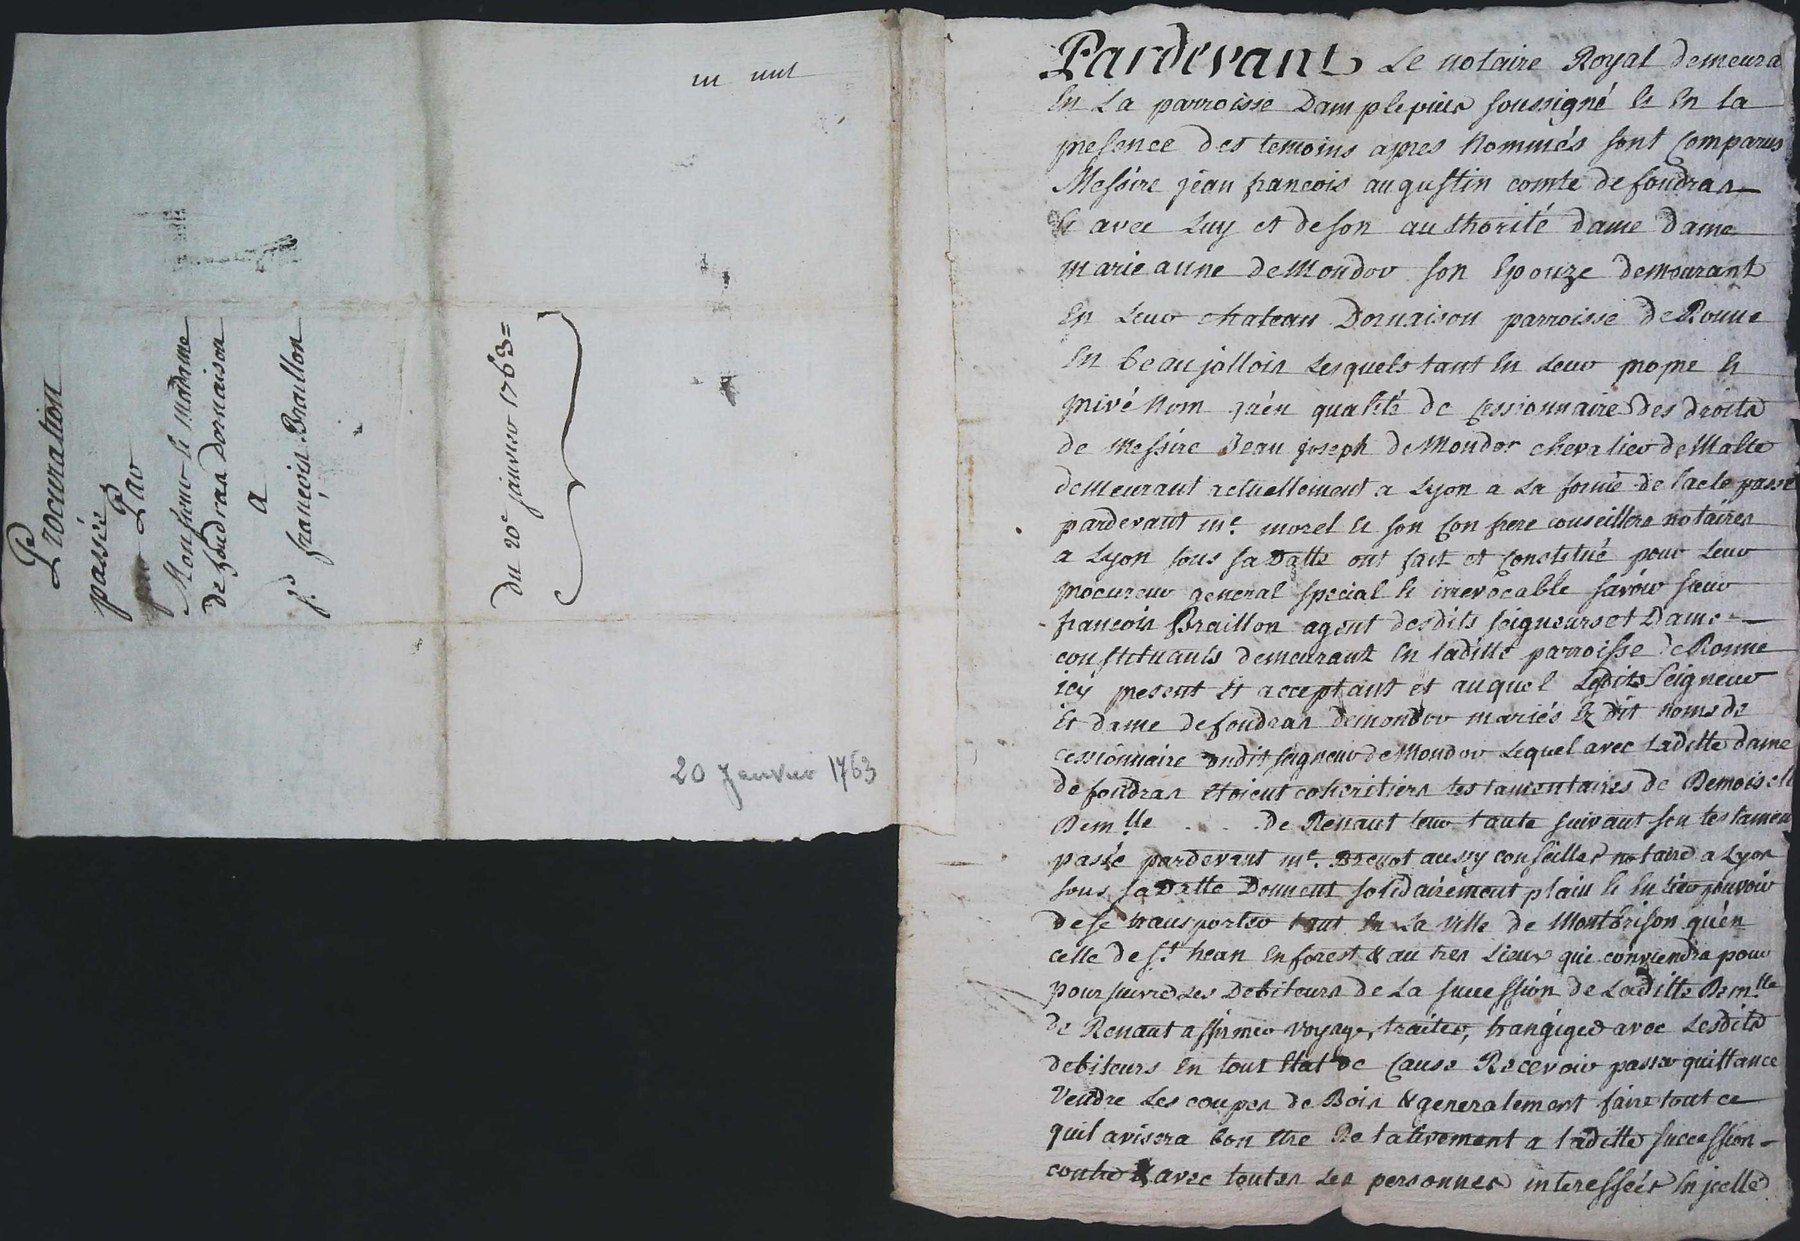 Procuration
passée
par Par
Monsieur & Madame
de foudras Dornaison
a
s.r françois Braillon
du 20e janvier 1763=
20 Janvier 1763
Pardevant Le notaire Royal demeura
En La parroisse Damplepuis soussigné & En la
presence des temoins apres Nommés sont Comparus
Messire jéan francois augustin comte de foudras
& avec Luy et de son authorité dame dame
marie anne de Mondor son Epouze demourant
En Leur chateau Dornaison parroisse de Ronne
En beaujollois Lesquels tant En Leur propre &
privé Nom qu'én qualité de Cessionnaire des droits
de Messire Jean joseph de Mondor chevalier de Malte
demeurant actuellement a Lyon a La forme de l'acte passé
pardevant me. morel & son Confrere conseillers notaires
a Lyon sous sa Datte ont fait et Constitué pour Leur
procureur general special & irrevocable savoir sieur
francois Braillon agent desdits seigneurs et Dame
constituants demeurant En laditte parroisse de Ronne
icy present Et acceptant et auquel Lesdits Seigneur
Et dame de foudras demondor mariés & dit noms de
cessionnaire dudit seigneur de Mondor Lequel avec Laditte dame
de foudras Etoient coheritiers testamentaires de Demoiselle
Demlle . . . de Renaut leur tante suivant son testamen
passé pardevant me. Brenot aussy conseiller notaire a Lyon
sous sa Datte Donnent solidairement plain & En tier pouvoir
de se transporter tant En La Ville de Montbrison qu'én
celle de s.t hean En forest & autres Lieux qui conviendra pour
poursuivre Les Debiteurs de La succession de Laditte Demlle
de Renaut affirmer voyage, traiter, transiger avec Lesdits
debiteurs En tout Etat de Cause Recevoir passer quittance
Vendre Les coupes de Bois & generalement faire tout ce
quil avisera bon Etre Relativement a laditte succession
contre & avec toutes Les personnes interessées En jcelle